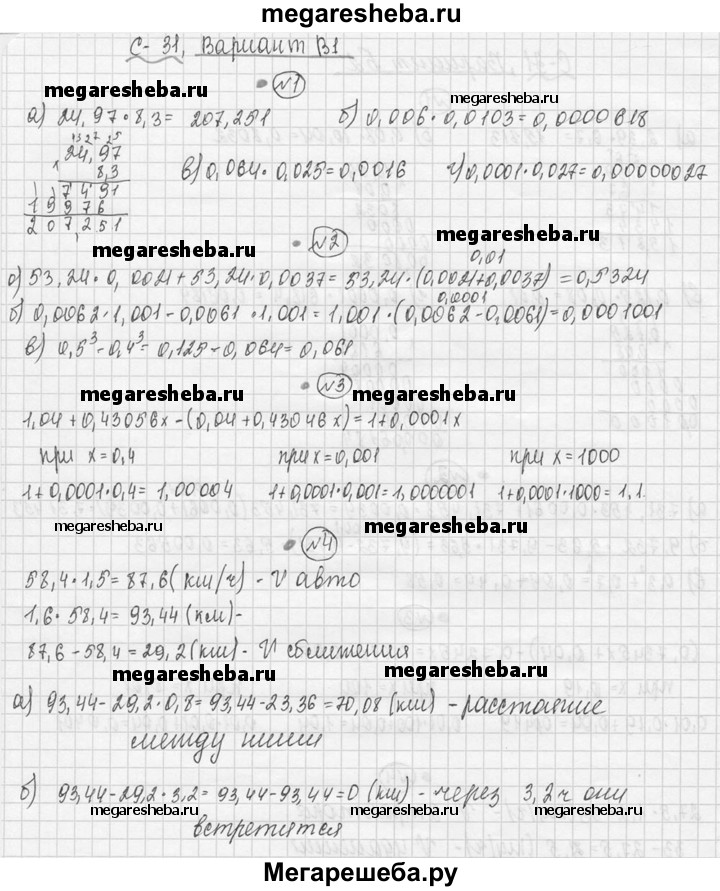 megaresheba.ru
С-31, Вариант В1
№1
megaresheba.ru megaresheba.ru
а) 24,97·8,3= 207,251 б) 0,006·0,0103=0,0000618
13 27 25
24,97 в) 0,064·0,025=0,0016 г) 0,0001·0,027=0,0000027
× 8,3
7491
19976
207251
№2
megaresheba.ru megaresheba.ru
0,01
а) 53,24·0,0021+53,24·0,0037=53,24·(0,0021+0,0037)=0,5324
0,0001
б) 0,0062·1,001-0,0061·1,001=1,001·(0,0062-0,0061)=0,0001001
в) 0,5³-0,4³=0,125-0,064=0,061
№3
megaresheba.ru megaresheba.ru
1,04+0,43056x-(0,04+0,43046x)=1+0,0001x
при x=0,4 при x=0,001 при x=1000
1+0,0001·0,4= 1,00004 1+0,0001·0,001=1,0000001 1+0,0001·1000=1,1.
megaresheba.ru megaresheba.ru
№4
58,4·1,5=87,6(км/ч) - V авто
1,6·58,4=93,44(км)-
87,6-58,4=29,2(км)- V сближения
megaresheba.ru megaresheba.ru
а) 93,44-29,2·0,8=93,44-23,36=70,08(км) - расстояние
между ними
б) 93,44-29,2·3,2=93,44-93,44=0 (км) - через 3,2ч они
megaresheba.ru megaresheba.ru
встретятся
Мегарешеба.ру